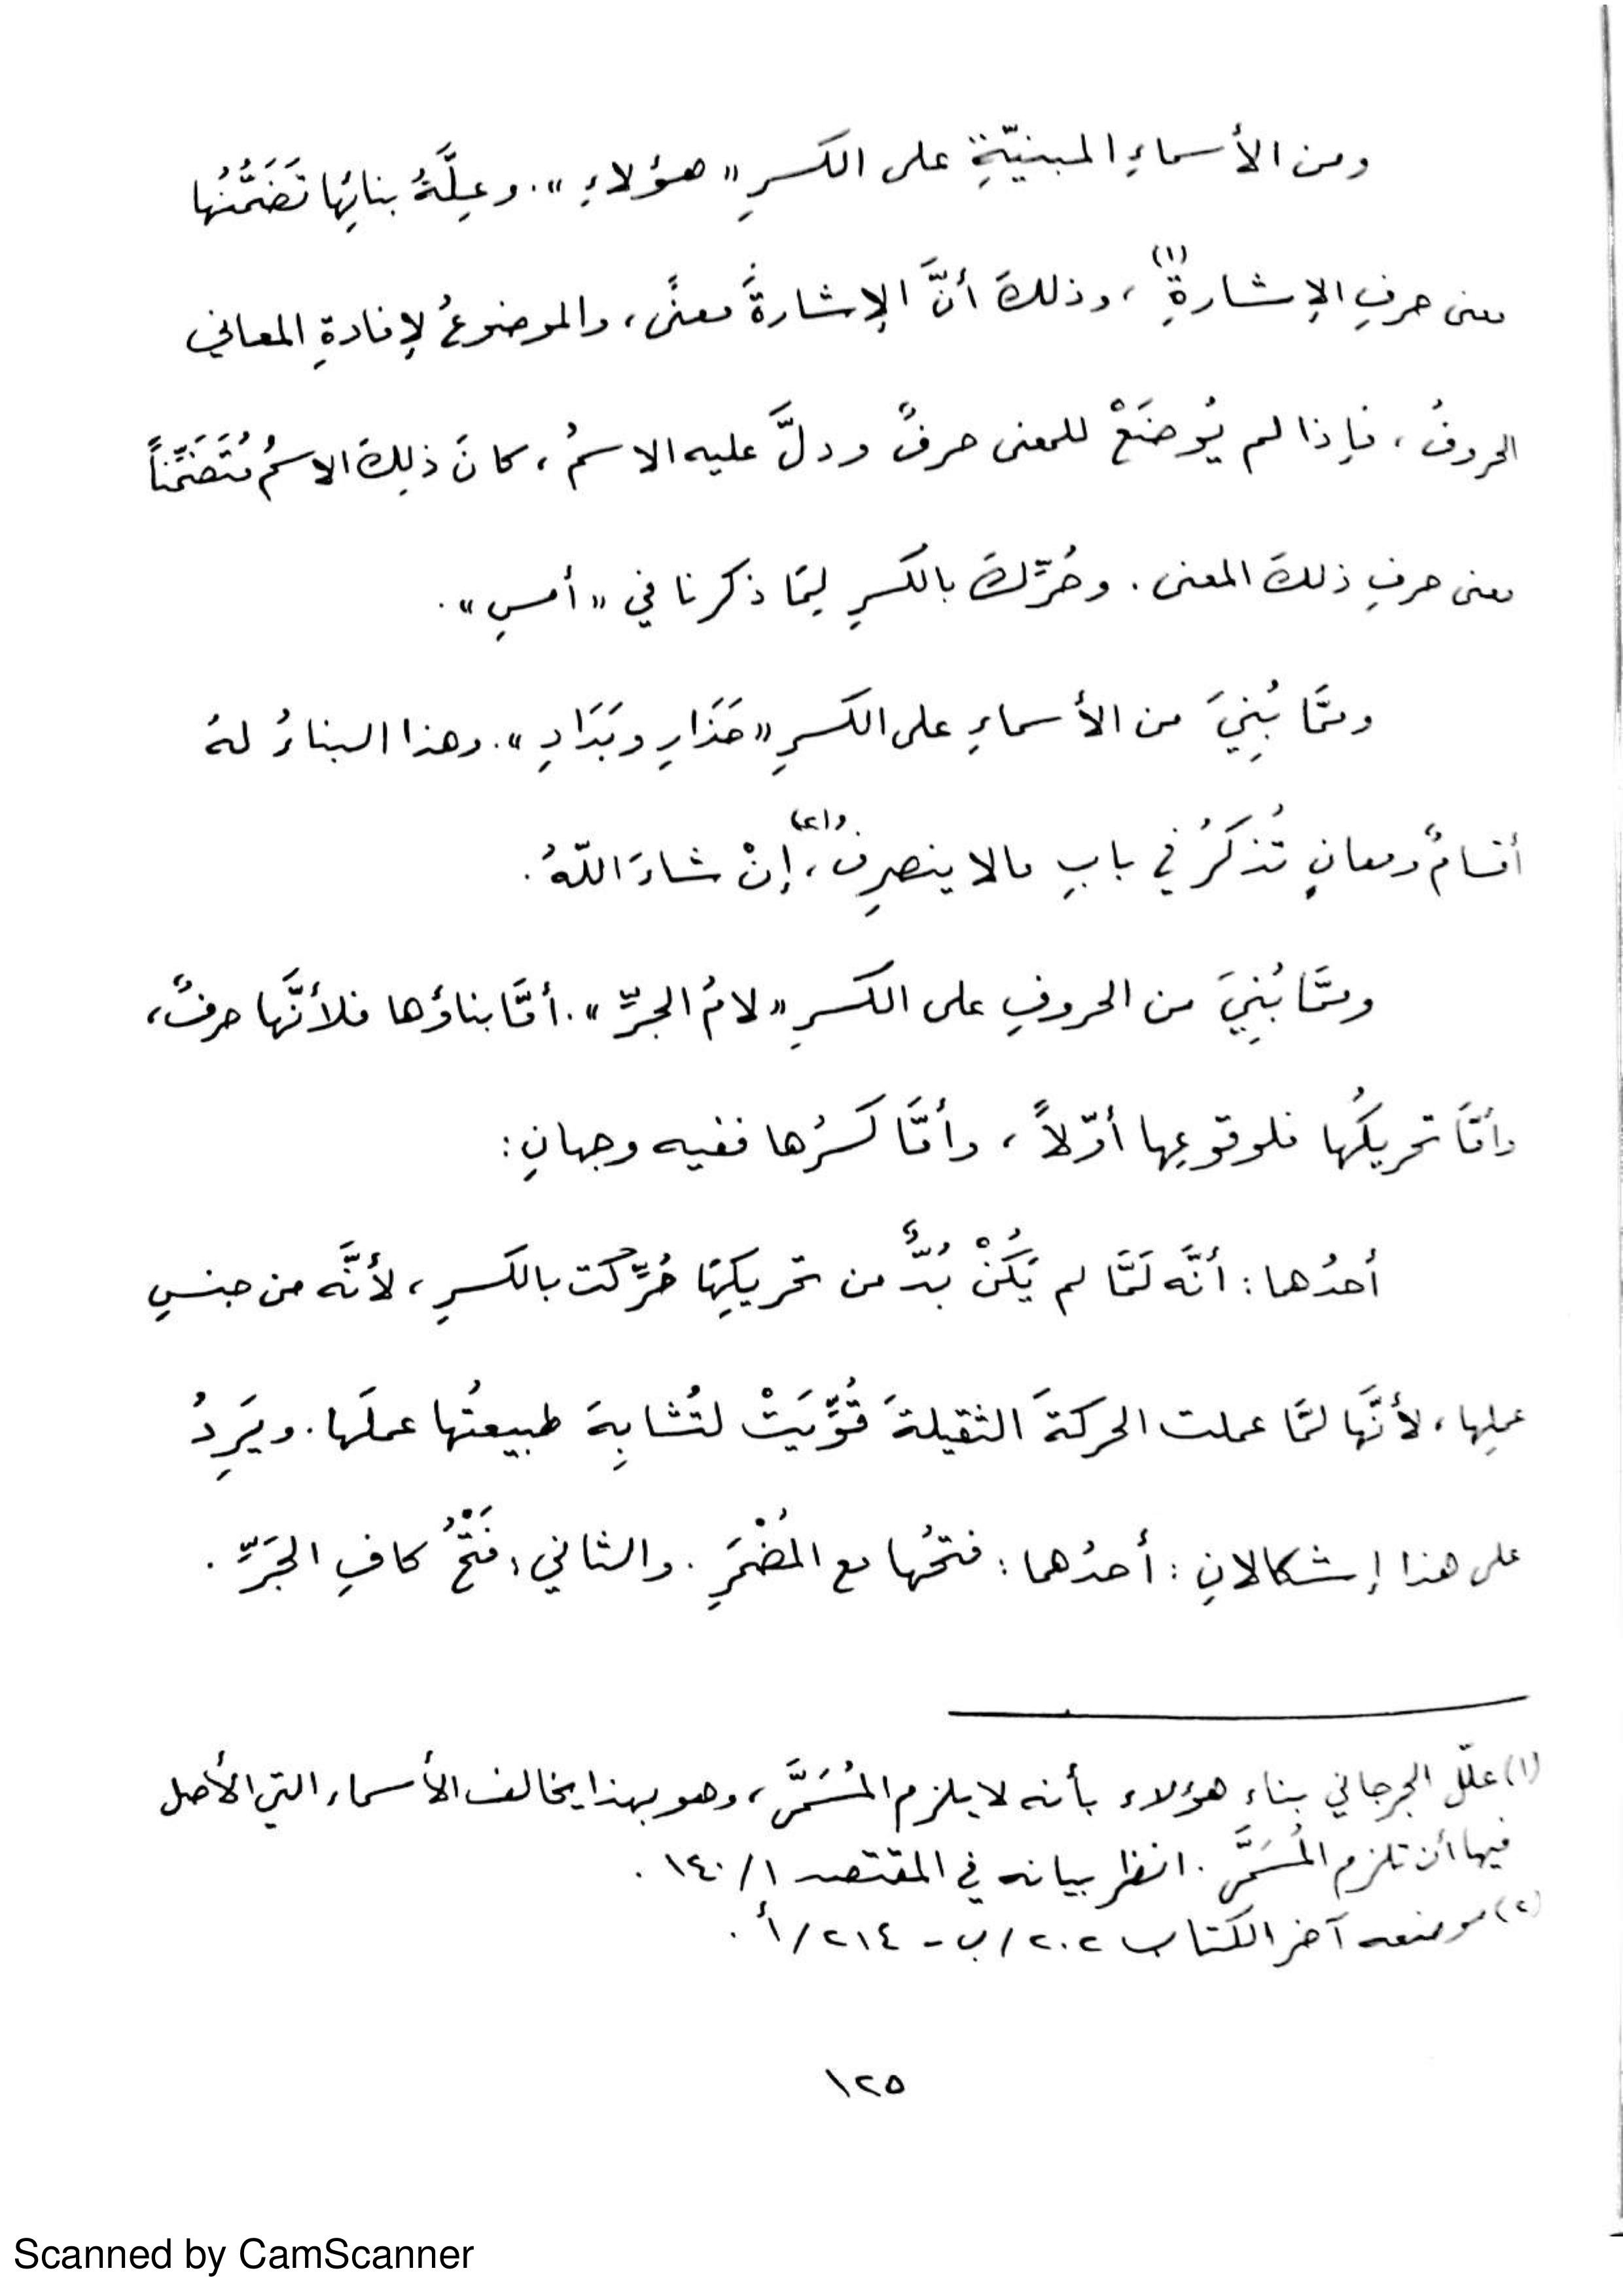 ومن الأسماءِ المبنيّةِ على الكسرِ «هؤلاءِ». وعِلَّةُ بنائِها تَضَمُّنُها
معنى حرفِ الإشارةِ(١)، وذلكَ أنَّ الإشارةَ معنًى، والموضوعُ لإفادةِ المعاني
الحروفُ، فإذا لم يُوضَعْ للمعنى حرفٌ ودلَّ عليه الاسمُ، كانَ ذلِكَ الاسمُ مُتَضَمِّناً
معنى حرفِ ذلكَ المعنى. وحُرِّكَ بالكسرِ لِمَا ذكرنا في «أمسِ».
وممَّا بُنِيَ من الأسماءِ على الكسرِ «حَذَارِ وبَدَادِ». وهذا البناءُ لهُ
أقسامٌ ومعانٍ تُذكَرُ في بابِ مالا ينصرِفُ(٢)، إنْ شاءَ اللّهُ.
وممَّا بُنِيَ من الحروفِ على الكسرِ «لامُ الجرِّ». أمَّا بناؤها فلأنَّها حرفٌ،
وأمَّا تحريكُها فلوقوعِها أوّلاً، وأمَّا كسرُها ففيه وجهانِ:
أحدُهما: أنَّه لَمَّا لم يَكُنْ بُدٌّ من تحريكِها حُرِّكت بالكسرِ، لأنَّه من جنسِ
عملِها، لأنَّها لمَّا عملت الحركةَ الثقيلةَ قُوِّيَتْ لتُشابِهَ طبيعتُها عملَها. ويَرِدُ
على هذا إشكالانِ: أحدُهما: فتحُها مع المُضْمَرِ. والثاني: فَتْحُ كافِ الجَرِّ.
(١) علّل الجرجاني بناء هؤلاء بأنه لا يلزم المُسَمَّى، وهو بهذا يخالف الأسماء التي الأصل
فيها أن تلزم المُسَمَّى. انظر بيانه في المقتصد ١/١٤٠.
(٢) موضعه آخر الكتاب ٢٠٢/ب - ٢١٤/أ.
١٢٥
Scanned by CamScanner